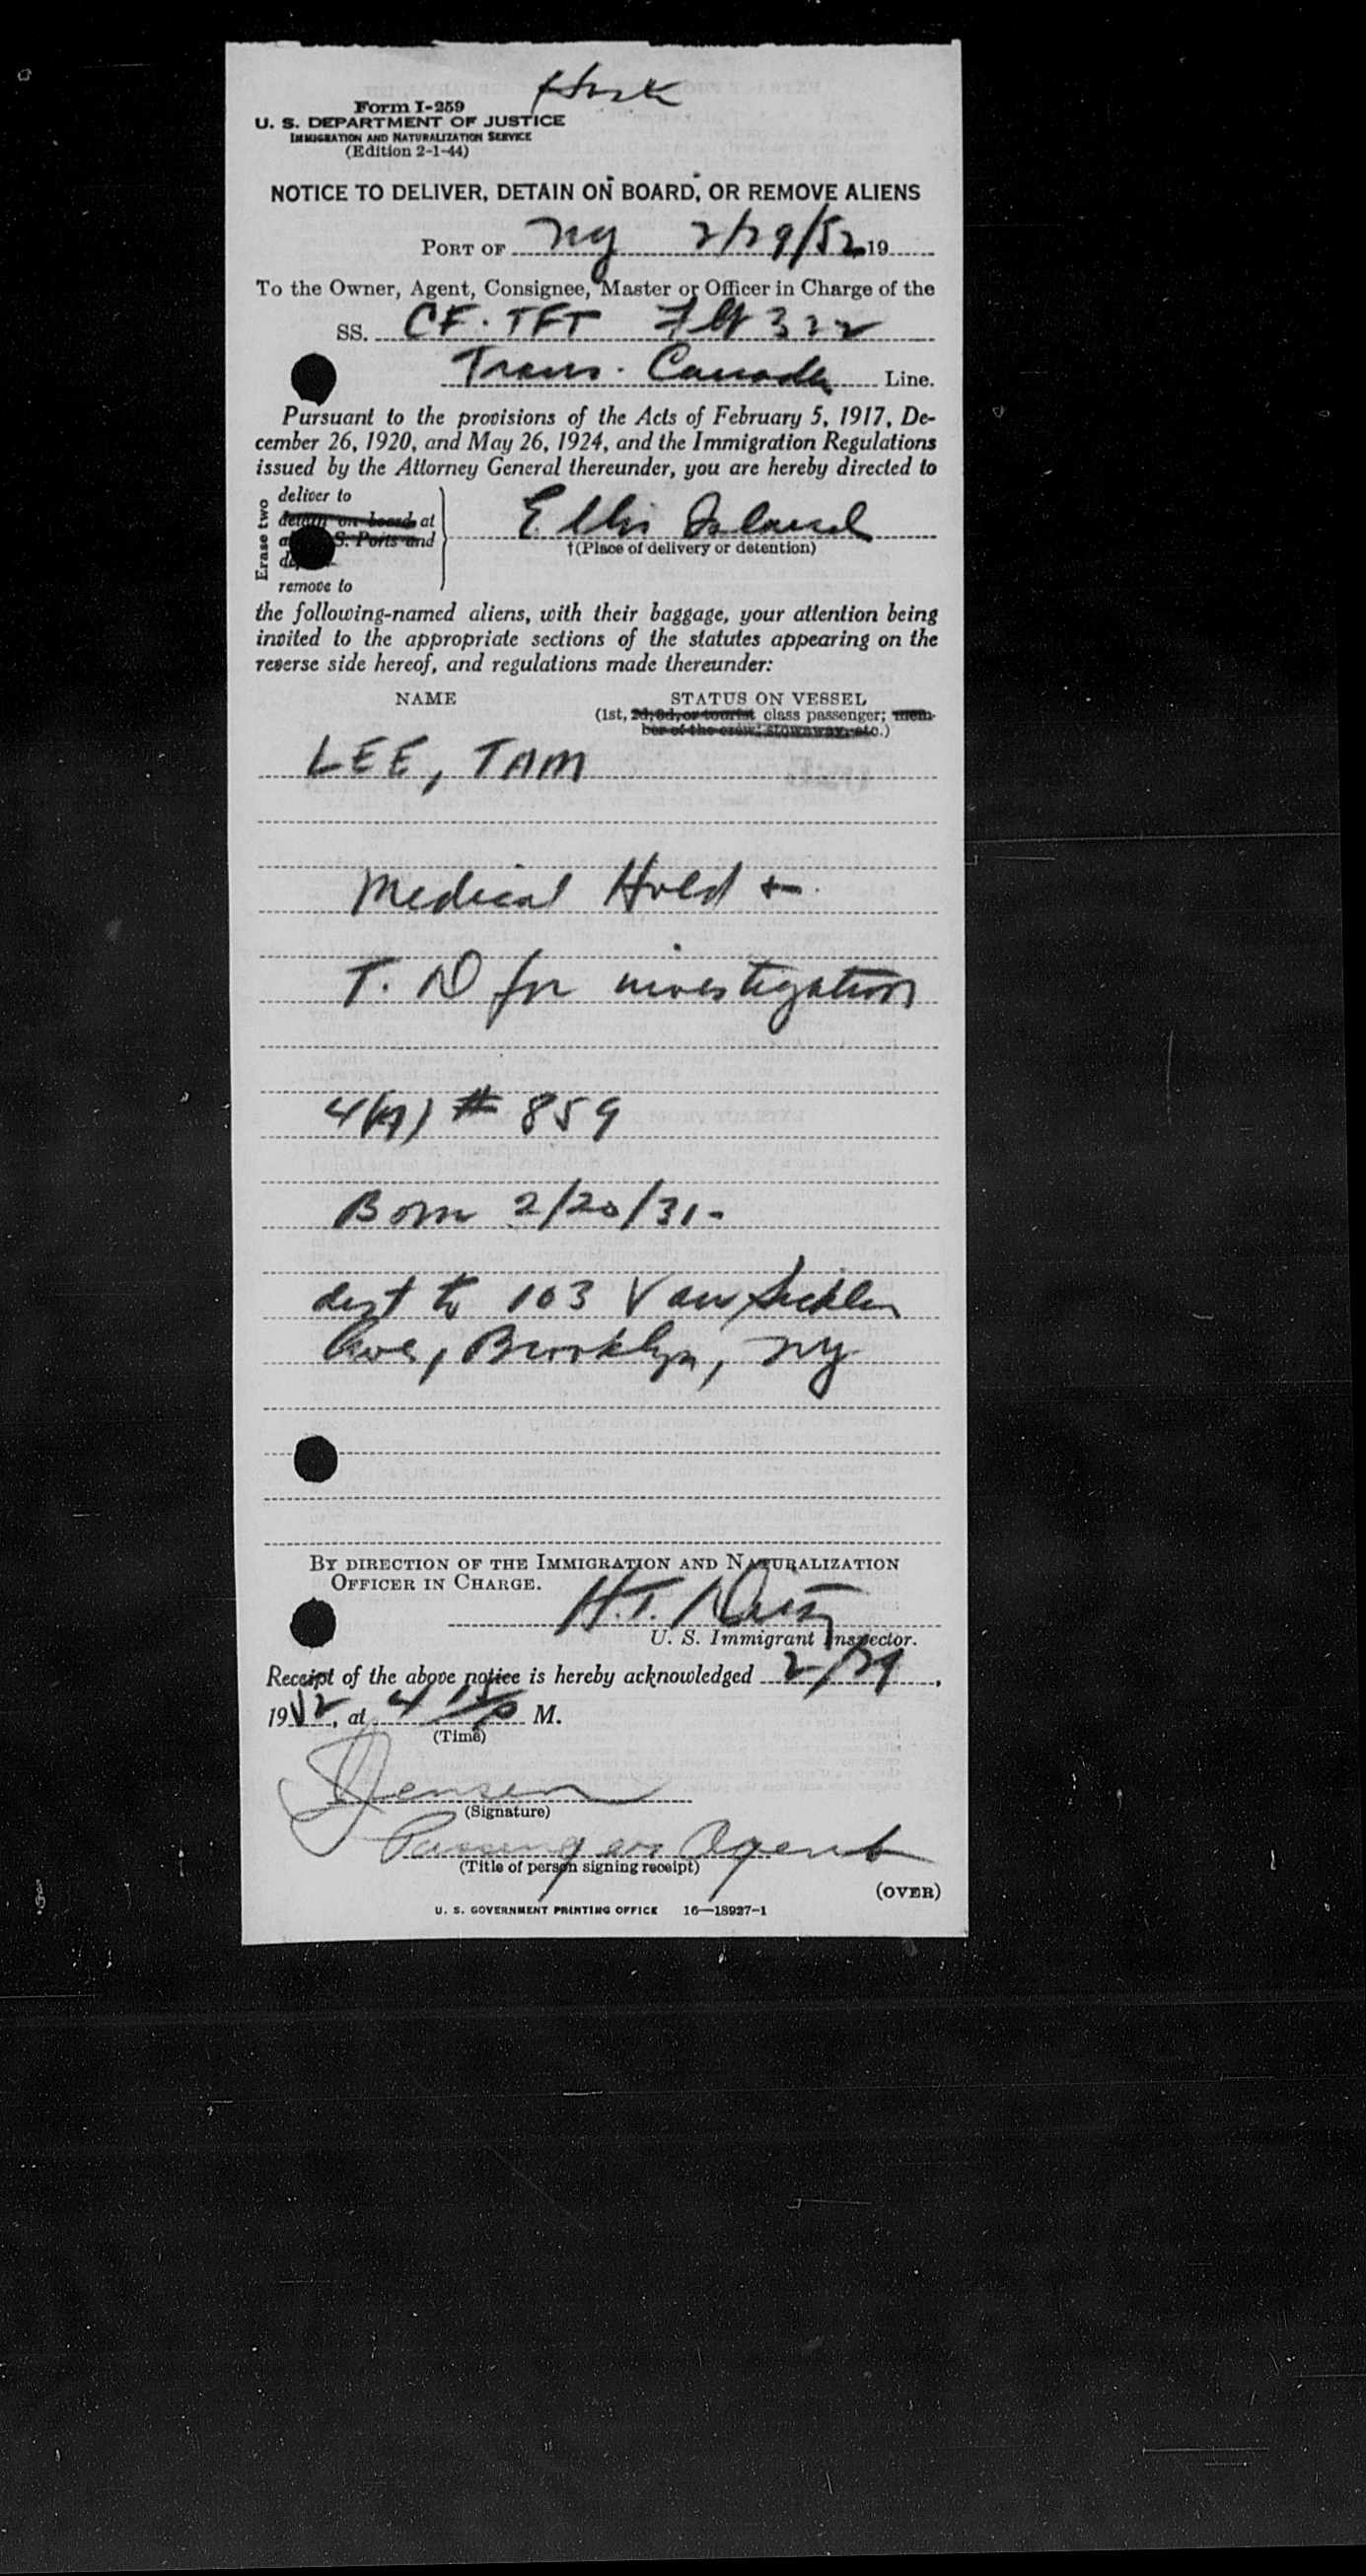 Form I-259
U. S. DEPARTMENT OF JUSTICE
IMMIGRATION AND NATURALIZATION SERVICE
(Edition 2-1-44)
NOTICE TO DELIVER, DETAIN ON BOARD, OR REMOVE ALIENS
PORT OF NY 2/29/52 19
To the Owner, Agent, Consignee, Master or Officer in Charge of the
SS. CF. TFT Flt 322
Trans. Canada Line.
Pursuant to the provisions of the Acts of February 5, 1917, De-
cember 26, 1920, and May 26, 1924, and the Immigration Regulations
issued by the Attorney General thereunder, you are hereby directed to
Erase two
deliver to
detain on board at
S. Ports and
remove to
Ellis Island
†(Place of delivery or detention)
the following-named aliens, with their baggage, your attention being
invited to the appropriate sections of the statutes appearing on the
reverse side hereof, and regulations made thereunder:
NAME STATUS ON VESSEL
(1st, 2d, 3d, or tourist class passenger; mem-
ber of the crew, stowaway, etc.)
LEE, TAM
Medical Hold +
T. D for investigation
4(A) # 859
Born 2/20/31-
dest to 103 Van Sicklen
Ave, Brooklyn, NY
BY DIRECTION OF THE IMMIGRATION AND NATURALIZATION
OFFICER IN CHARGE.
H.T.
U. S. Immigrant Inspector.
Receipt of the above notice is hereby acknowledged 2/29,
1952, at 4 15 p M.
(Time)
Jensen
(Signature)
Passenger Agent
(Title of person signing receipt)
(OVER)
U. S. GOVERNMENT PRINTING OFFICE 16—18927-1